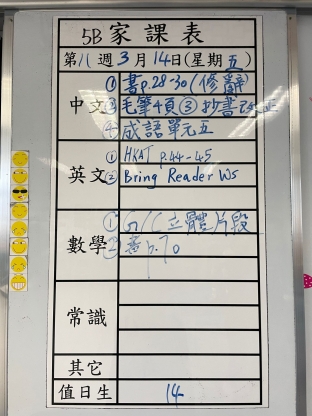 5B 家課表
第八週 3月14日(星期五)
中文 ① 書p.28-30(修辭)
② 毛筆4頁 ③ 抄書
④ 成語單元五
英文 ① HKAT p.44-45
② Bring Reader Ws
數學 ① G/C 立體片段
② 書p.70
常識
其它
值日生 14